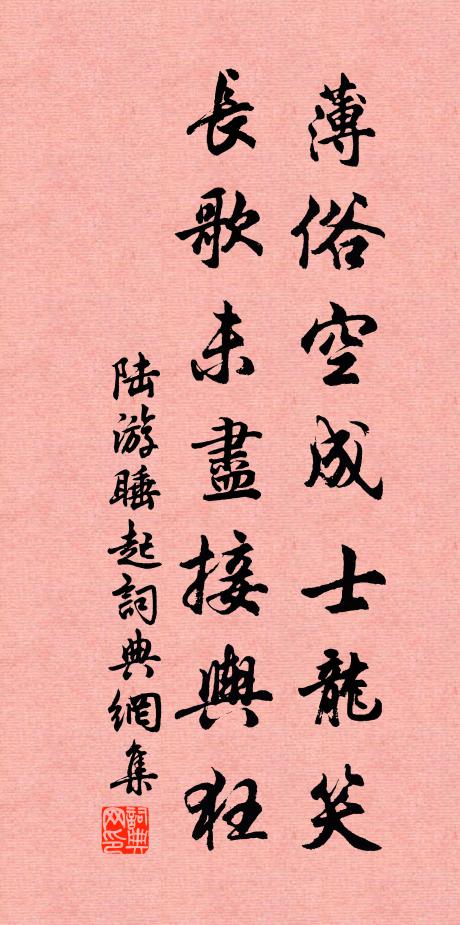 薄俗空成士龍笑
長歌未盡接輿狂
陆游睡起詞典網集
詞典网印